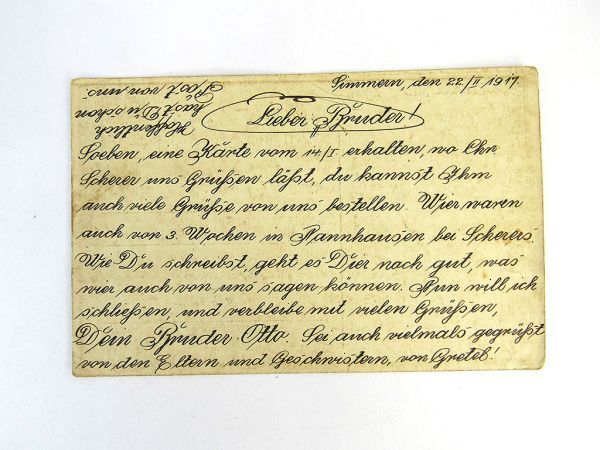 Simmern, den 22/II 1917.
Hoffentlich
hast Du schon
Post von mir.
Lieber Bruder!
Soeben, eine Kārte vom 14/I erhalten, wo Chr.
Scherer uns Grüßen läßt, du kannst Ihm
auch viele Grüße von uns bestellen. Wier waren
auch vor 3. Wochen in Nannhausen bei Scherers.
Wie Du schreibst, geht es Dier noch gut, was
wier auch von uns sagen können. Nun will ich
schließen, und verbleibe mit vielen Grüßen,
Dein Bruder Otto. Sei auch vielmals gegrüßt
von den Eltern und Geschwistern, von Gretel!